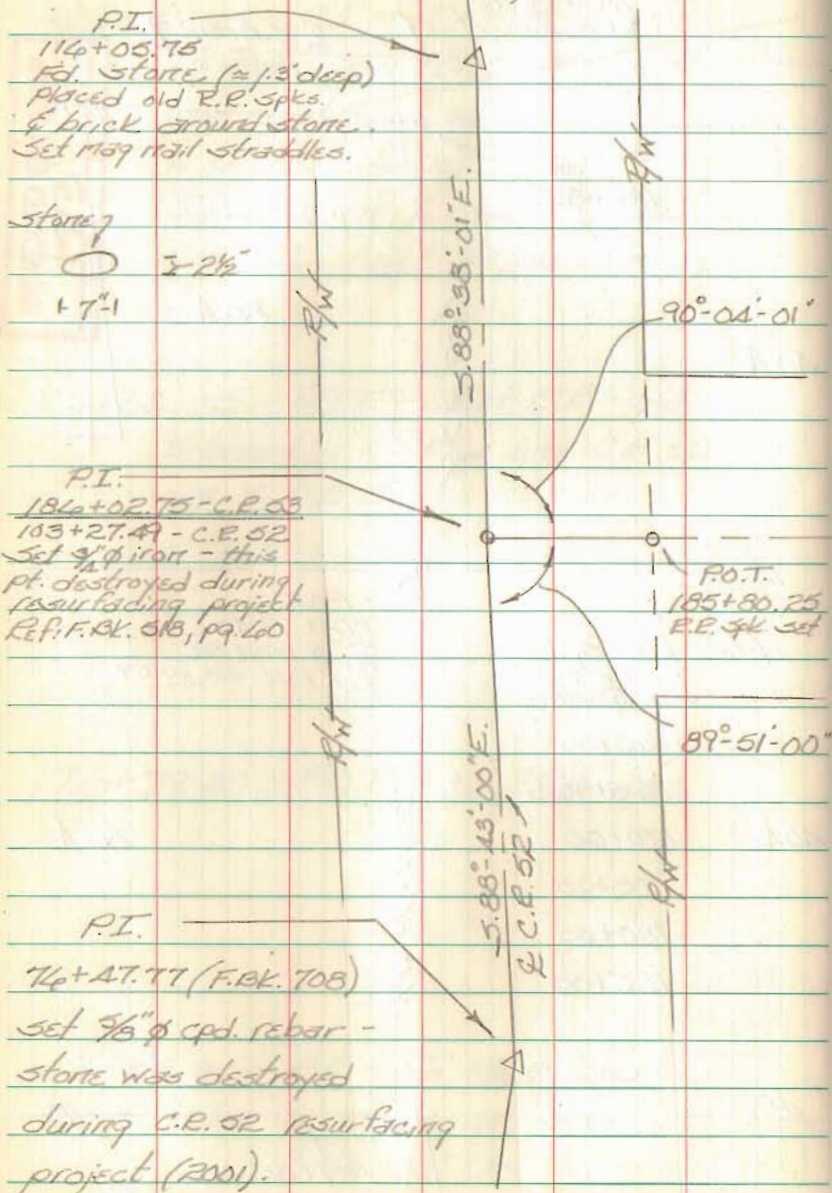 P.I.
116+05.75
Fd. stone (≈1.3' deep)
placed old R.R. Spks.
& brick around stone.
Set mag nail straddles.
stone
2½"
7"
R/W
R/W
S.88°-38'-01"E.
90°-04'-01"
P.I.
186+02.75 - C.R. 53
103+27.49 - C.R. 52
Set ¾"ø iron - this
pt. destroyed during
resurfacing project
Ref: F.BK. 518, pg. 60
P.O.T.
185+80.25
R.R. Spk. Set
89°-51'-00"
R/W
S.88°-43'-00"E.
℄ C.R. 52
R/W
P.I.
76+47.77 (F.BK. 708)
set 5/8"ø cpd. rebar -
stone was destroyed
during C.R. 52 resurfacing
project (2001).